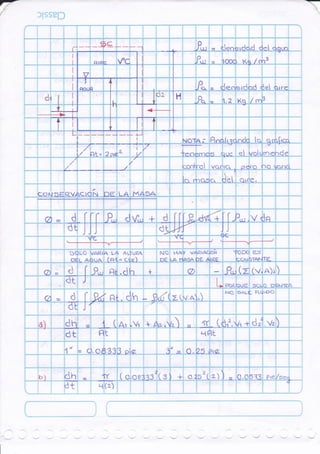 Classic
SC
AIRE
VC
AGUA
h
d1
d2
H
At = 2 pie²
ρw = densidad del agua
ρw = 1000 Kg / m³
ρa = densidad del aire
ρa = 1.2 Kg / m³
NOTA: Analizando la grafica
tenemos que el volumende
control varia, pero no varia
la masa del aire.
CONSERVACION DE LA MASA
0 = d/dt ∭ ρw dVw + d/dt ∭ ρa dVa + ∬ ρw . V dA
VC VC SC
SOLO VARIA LA ALTURA
DEL AGUA (At = cte)
NO HAY VARIACION
DE LA MASA DE AIRE
TODO ES
CONSTANTE
0 = d/dt ∫ ρw At . dh + 0 - ρw (Σ (Vi Ai))
PORQUE SOLO ENTRA
NO SALE FLUIDO
0 = d/dt ∫ ρw At . dh - ρw (Σ (Vi Ai))
a) dh/dt = 1/At (A1 . V1 + A2 . V2) = π/4At (d1² . V1 + d2² . V2)
1" = 0.08333 pie 3" = 0.25 pie
b) dh/dt = π/4(2) (0.08333²(3) + 0.25²(2)) = 0.0573 pie/seg